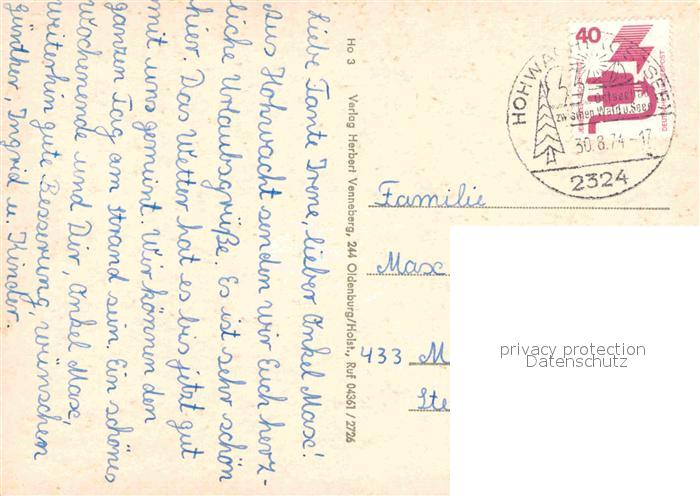 Liebe Tante Irene, lieber Onkel Max!
Aus Hohwacht senden wir Euch herz-
liche Urlaubsgrüße. Es ist sehr schön
hier. Das Wetter hat es bis jetzt gut
mit uns gemeint. Wir können den
ganzen Tag am Strand sein. Ein schönes
Wochenende und Dir, Onkel Max,
weiterhin gute Besserung, wünschen
Günther, Ingrid u. Kinder.
Ho 3 Verlag Herbert Venneberg, 244 Oldenburg/Holst., Ruf 04361 / 2726
40
HOHWACHT (OSTSEE)
Ostseebad
zw. Wald u. See
30.8.74-17
2324
Familie
Max
433 M
Ste
privacy protection
Datenschutz